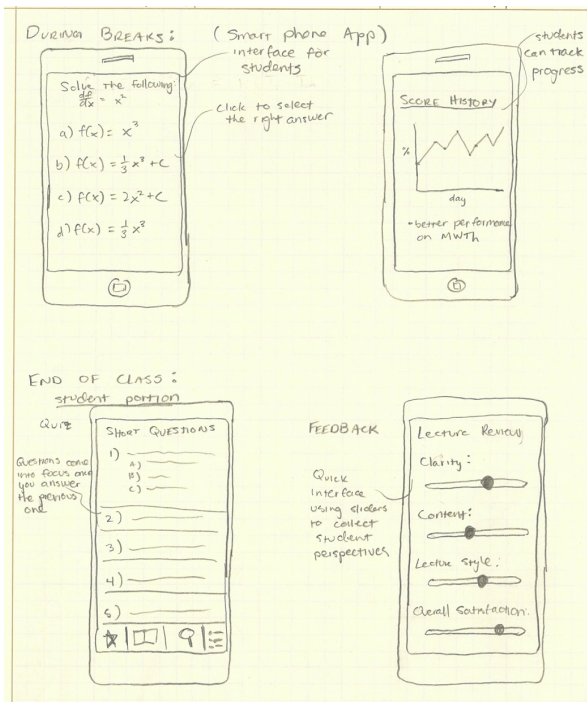 DURING BREAKS:
(Smart phone App)
interface for
students
Solve the following:
df/dx = x²
a) f(x) = x³
b) f(x) = 1/3 x³ + C
c) f(x) = 2x² + C
d) f(x) = 1/3 x³
click to select
the right answer
students
can track
progress
SCORE HISTORY
%
day
better performance
on MWTh
END OF CLASS:
student portion
QUIZ
Questions come
into focus once
you answer
the previous
one
SHORT QUESTIONS
1)
A)
B)
C)
2)
3)
4)
5)
FEEDBACK
Quick
interface
using sliders
to collect
student
perspectives
Lecture Review
Clarity:
Content:
Lecture Style:
Overall Satisfaction: